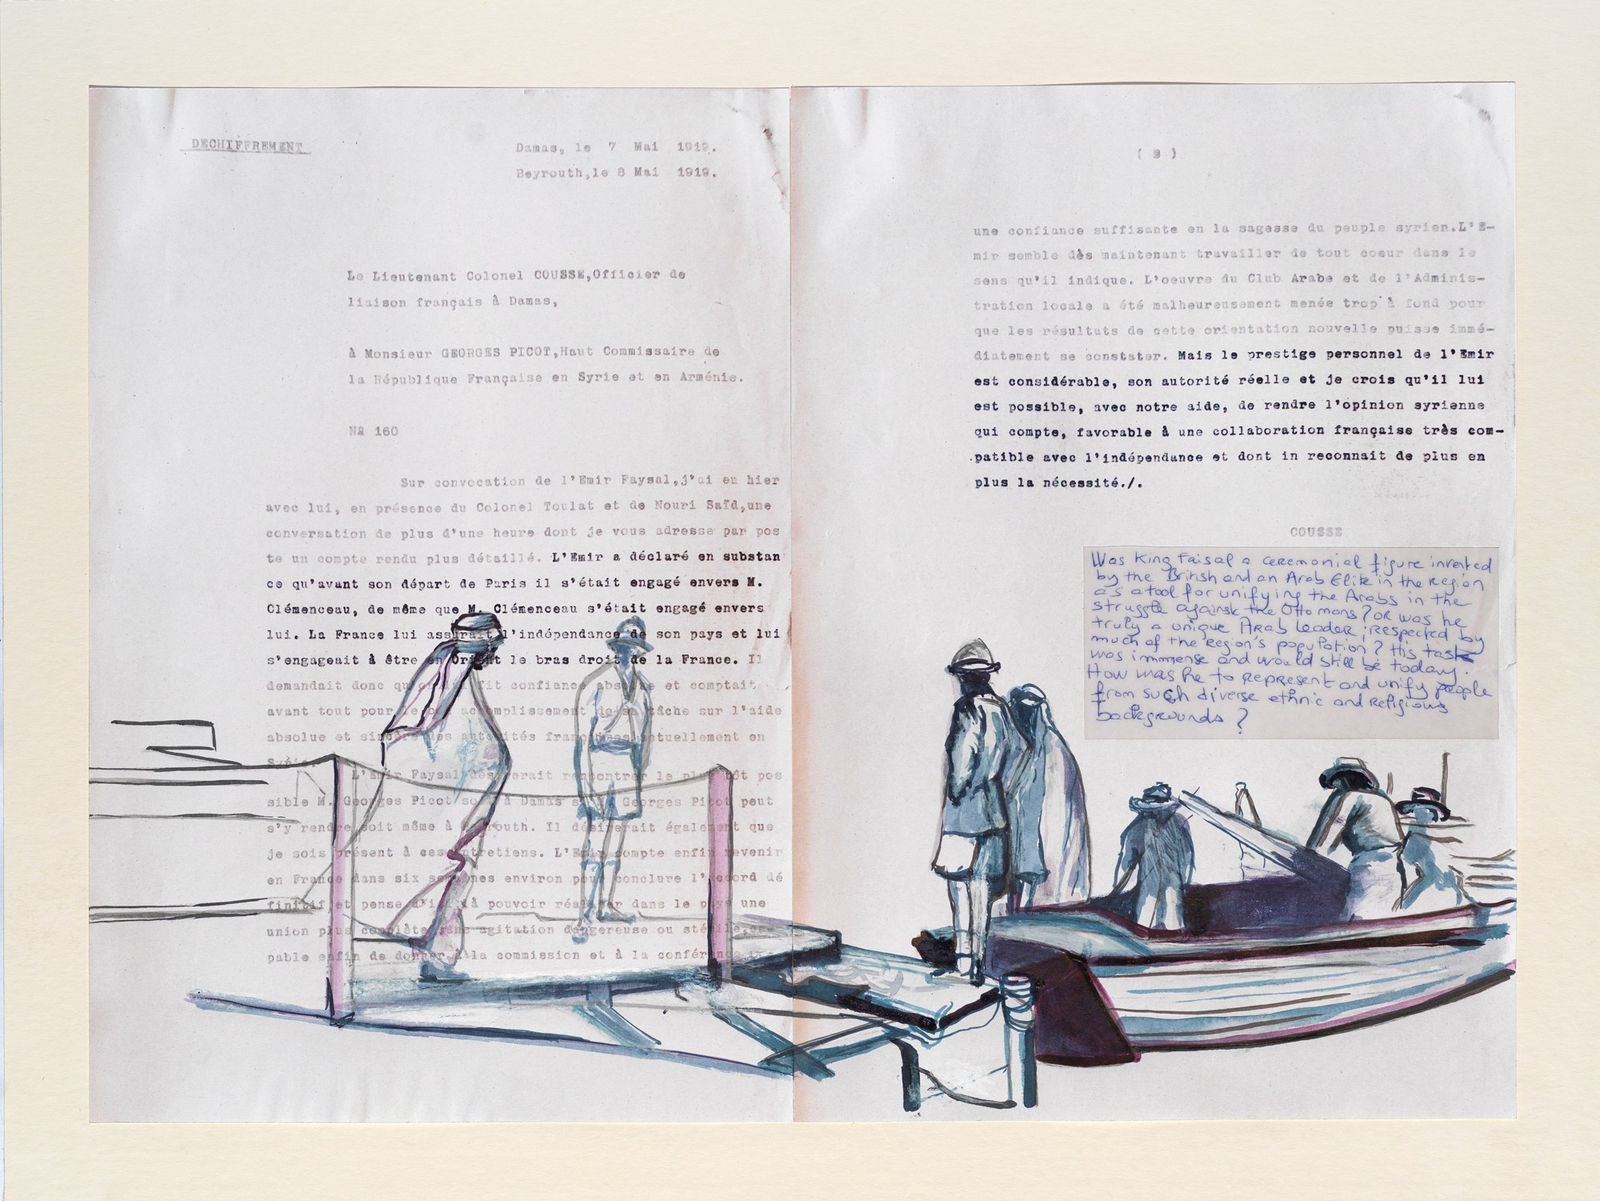 DECHIFFREMENT
Damas, le 7 Mai 1919.
Beyrouth,le 8 Mai 1919.
Le Lieutenant Colonel COUSSE,Officier de
liaison français à Damas,
à Monsieur GEORGES PICOT,Haut Commissaire de
la République Française en Syrie et en Arménie.
160
Sur convocation de l'Emir Faysal,j'ai eu hier
avec lui, en présence du Colonel Toulat et de Nouri Saïd,une
conversation de plus d'une heure dont je vous adresse par pos
te un compte rendu plus détaillé. L'Emir a déclaré en substan
ce qu'avant son départ de Paris il s'était engagé envers M.
Clémenceau, de même que M. Clémenceau s'était engagé envers
lui. La France lui assurait l'indépendance de son pays et lui
s'engageait à être en Orient le bras droit de la France. Il
demandait donc fit confiance absolue et comptait
avant tout pour le accomplissement de sa tâche sur l'aide
absolue et sincère des autorités françaises actuellement en
L'Emir Faysal désirerait rencontrer le plus tôt pos
sible M. Georges Picot à Damas Georges Picot peut
s'y rendre soit même à Beyrouth. Il désirerait également que
je sois présent à ces entretiens. L'Emir compte enfin revenir
en France dans six semaines environ pour conclure l'accord dé
finitif et pense à pouvoir réaliser dans le pays une
union plus complète sans agitation dangereuse ou stérile,
pable enfin de donner à la commission et à la conférence
une confiance suffisante en la sagesse du peuple syrien.L'E-
mir semble dès maintenant travailler de tout coeur dans le
sens qu'il indique. L'oeuvre du Club Arabe et de l'Adminis-
tration locale a été malheureusement menée trop à fond pour
que les résultats de cette orientation nouvelle puisse immé-
diatement se constater. Mais le prestige personnel de l'Emir
est considérable, son autorité réelle et je crois qu'il lui
est possible, avec notre aide, de rendre l'opinion syrienne
qui compte, favorable à une collaboration française très com-
patible avec l'indépendance et dont in reconnait de plus en
plus la nécessité./.
COUSSE
Was King Faisal a ceremonial figure invented
by the British and an Arab Elite in the region
as a tool for unifying the Arabs in the
struggle against the Ottomans? or was he
truly a unique Arab leader, respected by
much of the region's population? His task
was immense and would still be today.
How was he to represent and unify people
from such diverse ethnic and religious
backgrounds?